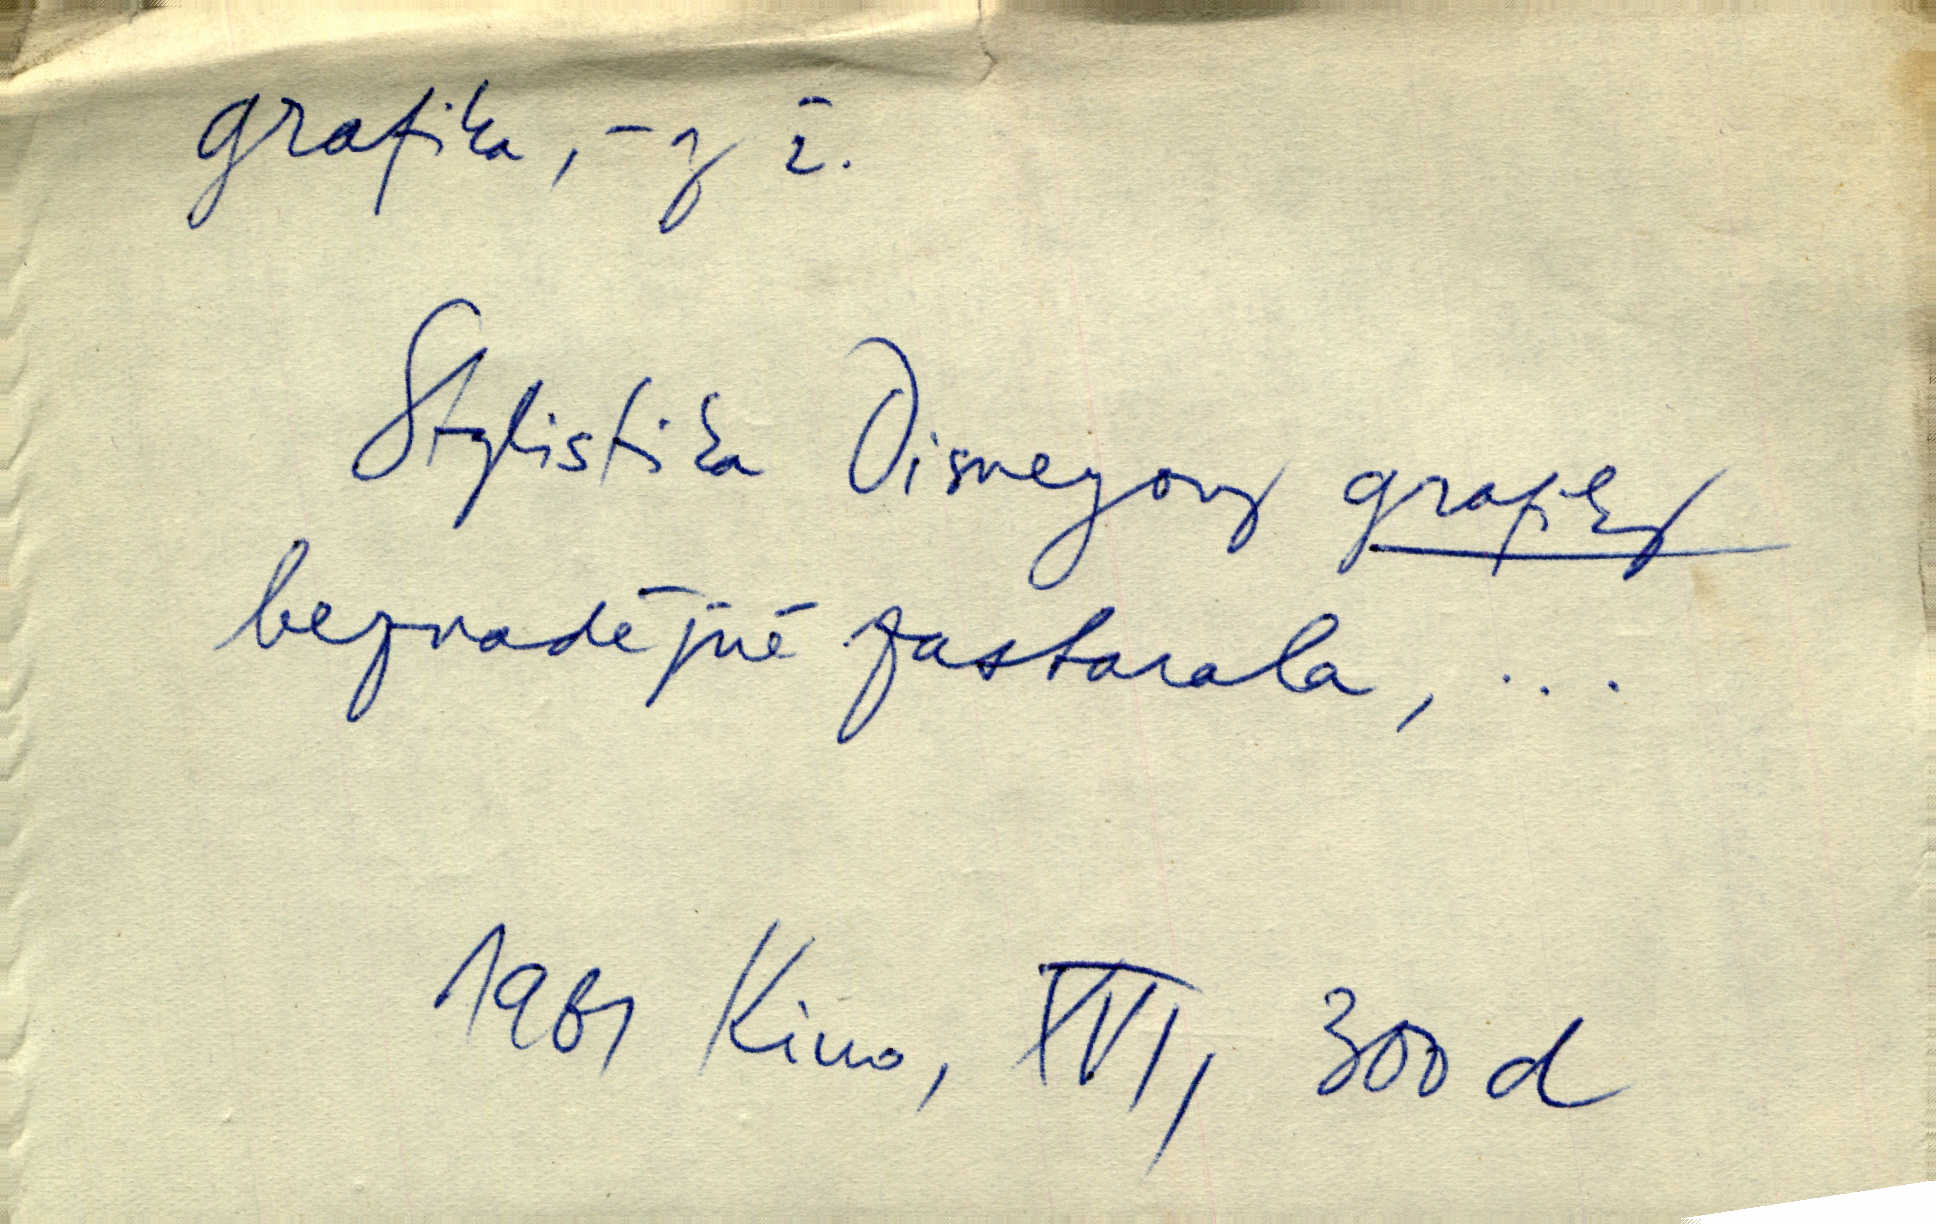 grafika, -y ž.
Stylistika Disneyovy grafiky
beznadějně zastarala, ...
1961 Kino, XVI, 300 d